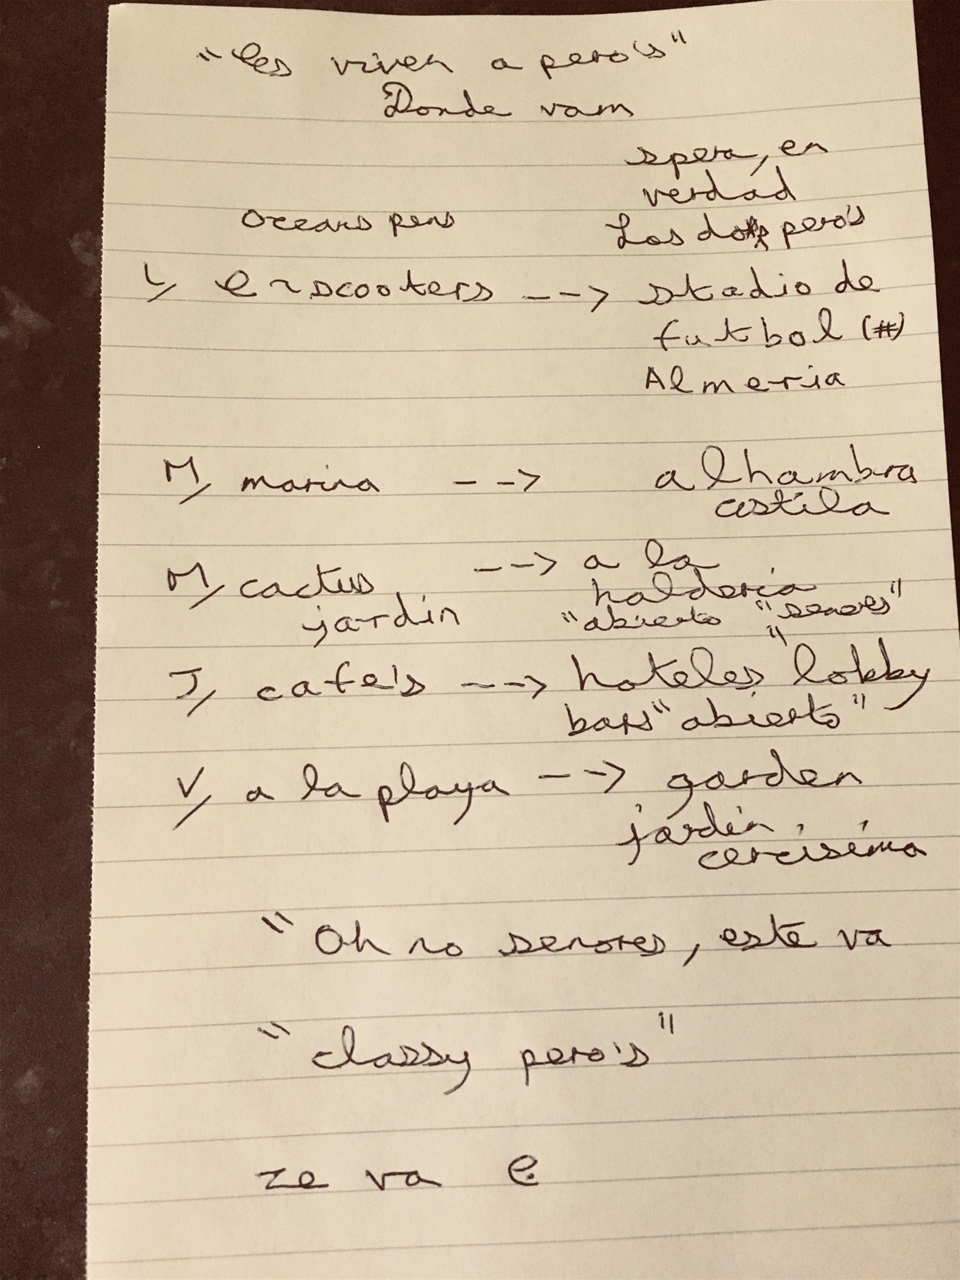 "les viven a pero's"
Donde vam
spera, en
verdad
Oceans pens
Los dos pero's
L/ e~scooters --> stadio de
futbol (#)
Almeria
M/ marina --> alhambra
castila
M/ cactus --> a la
jardin
halderia
"abierto "senores"
J/ cafe's --> hoteles "lobby
bars "abierto"
V/ a la playa --> garden
jardin,
cercisima
"Oh no senores, este va
"classy pero's"
ze va e